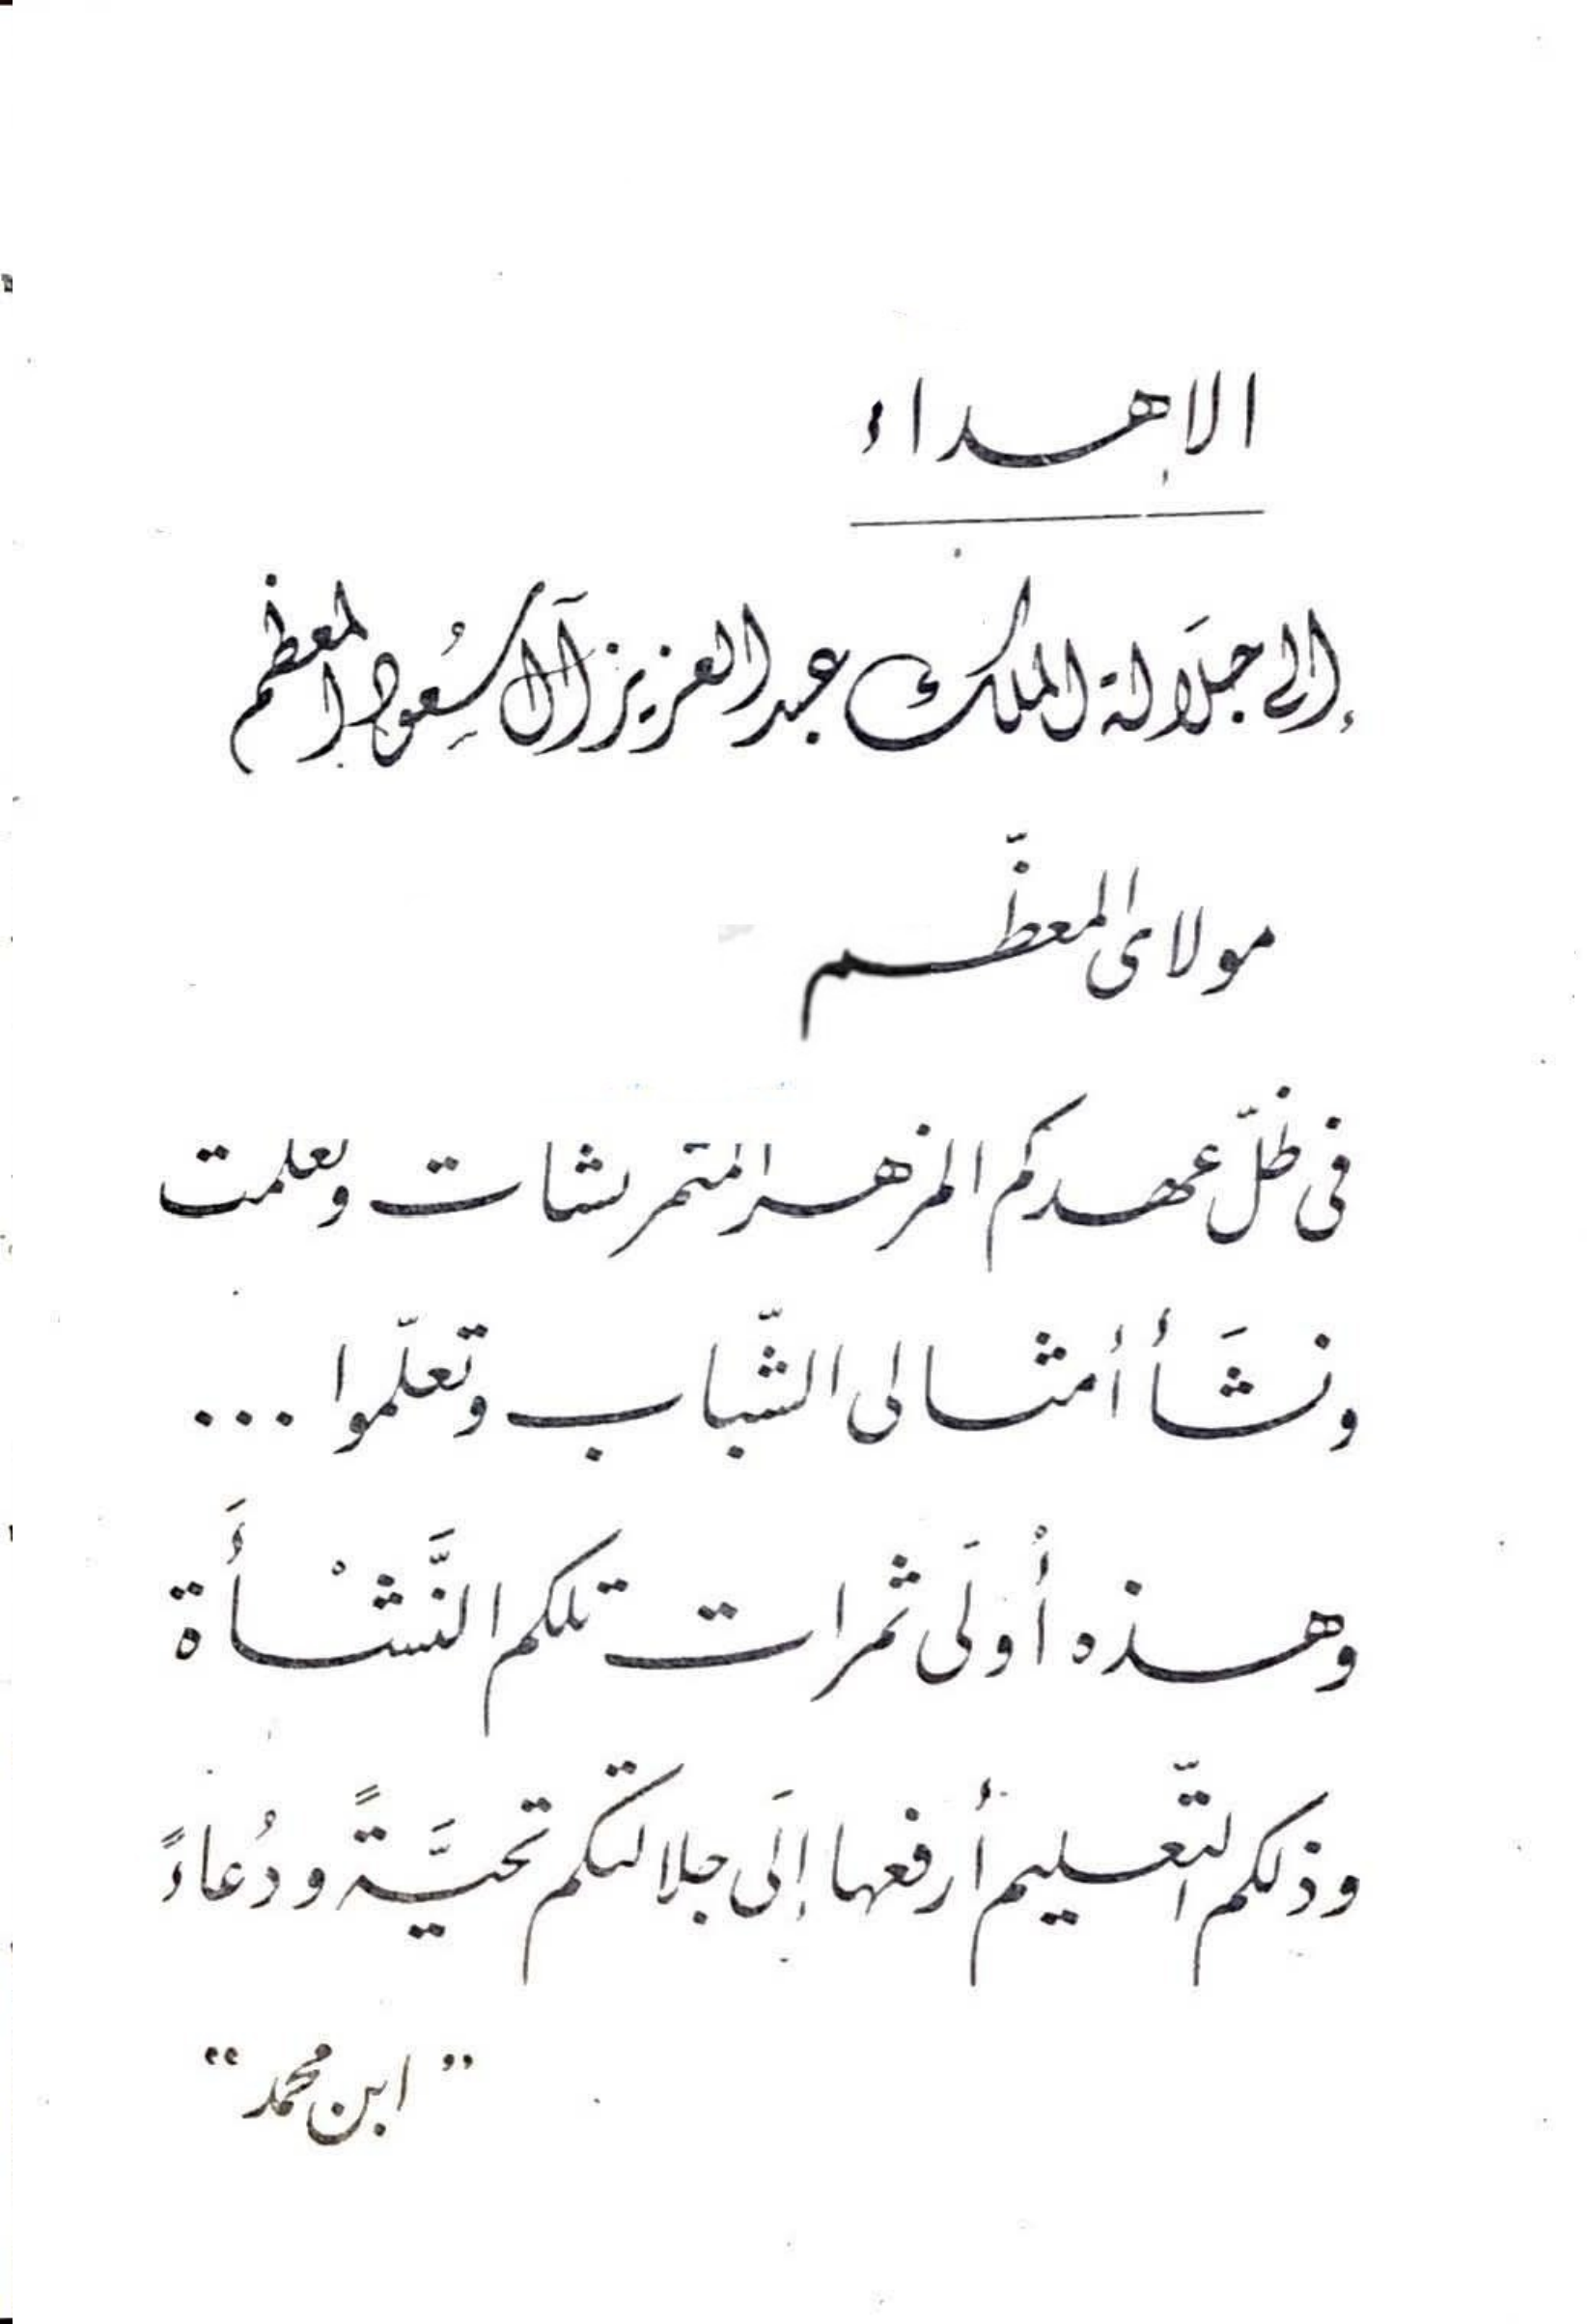 الإهداء
إلى جلَالة الملك عبد العزيز آل سُعود المعظم
مولاى المعظّم
فى ظلّ عهدكم المزهر المثمر نشأت وتعلمت
ونشَأ أمثالى الشّباب وتعلّموا ...
وهذه أولَى ثمرات تلكم النَّشْأَة
وذلكم التّعليم أرفعها إلَى جلالتكم تحيَّةً ودُعاءً
"ابن محمد"